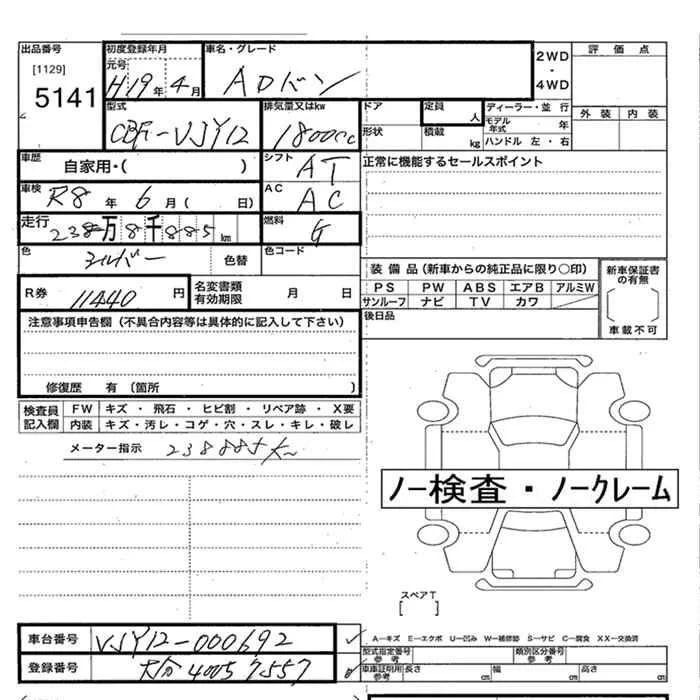 出品番号 初度登録年月 車名・グレード 2WD 評価点
[1129] 元号 ・
5141 H19年4月 ADバン 4WD
型式 排気量又はkw ドア 定員 人 ディーラー・並行 外装 内装
CBF-VJY12 1800cc 形状 積載 kg モデル年式 年
ハンドル 左・右
車歴 自家用・( ) シフト AT 正常に機能するセールスポイント
車検 R8年6月( 日) AC AC
走行 238万8千885km 燃料 G
色 シルバー 色替 色コード
装備品(新車からの純正品に限り○印) 新車保証書の有無
R券 11440円 名変書類有効期限 月 日 PS PW ABS エアB アルミW
サンルーフ ナビ TV カワ 車載不可
注意事項申告欄(不具合内容等は具体的に記入して下さい) 後日品
修復歴 有(箇所 )
検査員記入欄 FW キズ・飛石・ヒビ割・リペア跡・X要
内装 キズ・汚レ・コゲ・穴・スレ・キレ・破レ
メーター指示 238885km
ノー検査・ノークレーム
スペアT
[ ]
車台番号 VJY12-000692 A-キズ E-エクボ U-凹み W-補修跡 S-サビ C-腐食 XX-交換済
型式指定番号 参考 類別区分番号 参考
登録番号 大分400す7557 車庫証明用 参考 長さ cm 幅 cm 高さ cm